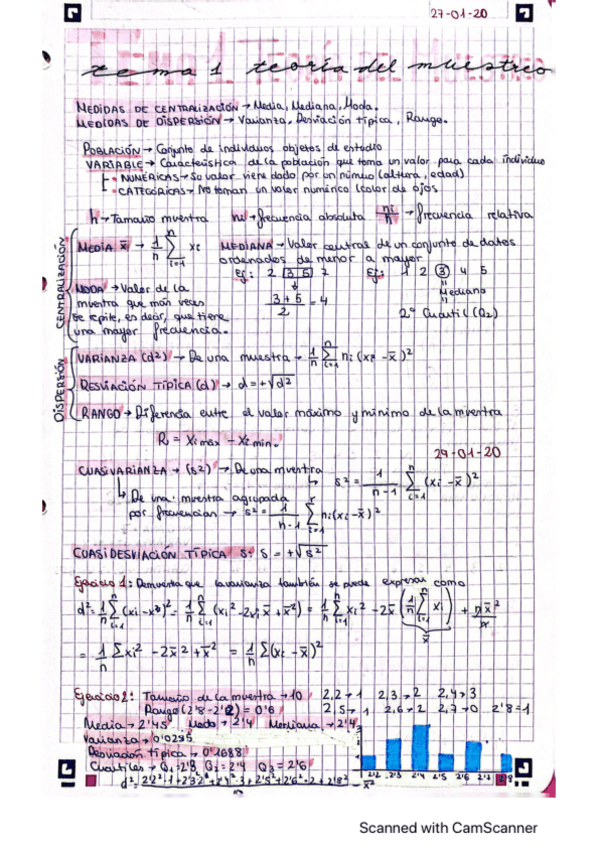 27-01-20
tema 1 teoría del muestreo
MEDIDAS DE CENTRALIZACIÓN → Media, Mediana, Moda.
MEDIDAS DE DISPERSIÓN → Varianza, Desviación típica, Rango.
POBLACIÓN → Conjunto de individuos objetos de estudio
VARIABLE → Característica de la población que toma un valor para cada individuo
NUMÉRICAS → Su valor viene dado por un número (altura, edad)
CATEGÓRICAS → No toman un valor numérico (color de ojos
n → Tamaño muestra ni → frecuencia absoluta ni/n → frecuencia relativa
CENTRALIZACIÓN
MEDIA x̄ → 1/n Σ i=1 n xi
MEDIANA → Valor central de un conjunto de datos
ordenados de menor a mayor
Ej: 2 3 5 7 Ej: 1 2 3 4 5
3+5/2 = 4
Mediana
2º Cuartil (Q2)
MODA → Valor de la
muestra que más veces
se repite, es decir, que tiene
una mayor frecuencia.
DISPERSIÓN
VARIANZA (d²) → De una muestra → 1/n Σ i=1 n ni (xi - x̄)²
DESVIACIÓN TÍPICA (d) → d = +√d²
RANGO → Diferencia entre el valor máximo y mínimo de la muestra
R = xi máx - xi min.
29-01-20
CUASIVARIANZA → (s²) → De una muestra
s² = 1/n-1 Σ i=1 n (xi - x̄)²
De una muestra agrupada
por frecuencias → s² = 1/n-1 Σ i=1 r ni(xi - x̄)²
CUASIDESVIACIÓN TÍPICA s: s = +√s²
Ejercicio 1: Demuestra que la varianza también se puede expresar como
d² = 1/n Σ i=1 n (xi - x̄)² = 1/n Σ i=1 n (xi² - 2xi x̄ + x̄²) = 1/n Σ i=1 n xi² - 2x̄ (1/n Σ i=1 n xi) + n x̄²/n
x̄
= 1/n Σ xi² - 2x̄² + x̄² = 1/n Σ(xi - x̄)²
Ejercicio 2: Tamaño de la muestra → 10 2,2 → 1 2,3 → 2 2,4 → 3
Rango (2'8 - 2'2) = 0'6 2,5 → 1 2,6 → 2 2,7 → 0 2'8 = 1
Media → 2'45 Moda → 2'4 Mediana → 2'4
Varianza → 0'0285
Desviación típica → 0'1688
Cuartiles → Q1 = 2'3 Q2 = 2'4 Q3 = 2'6
2'2 2'3 2'4 2'5 2'6 2'7 2'8
Scanned with CamScanner